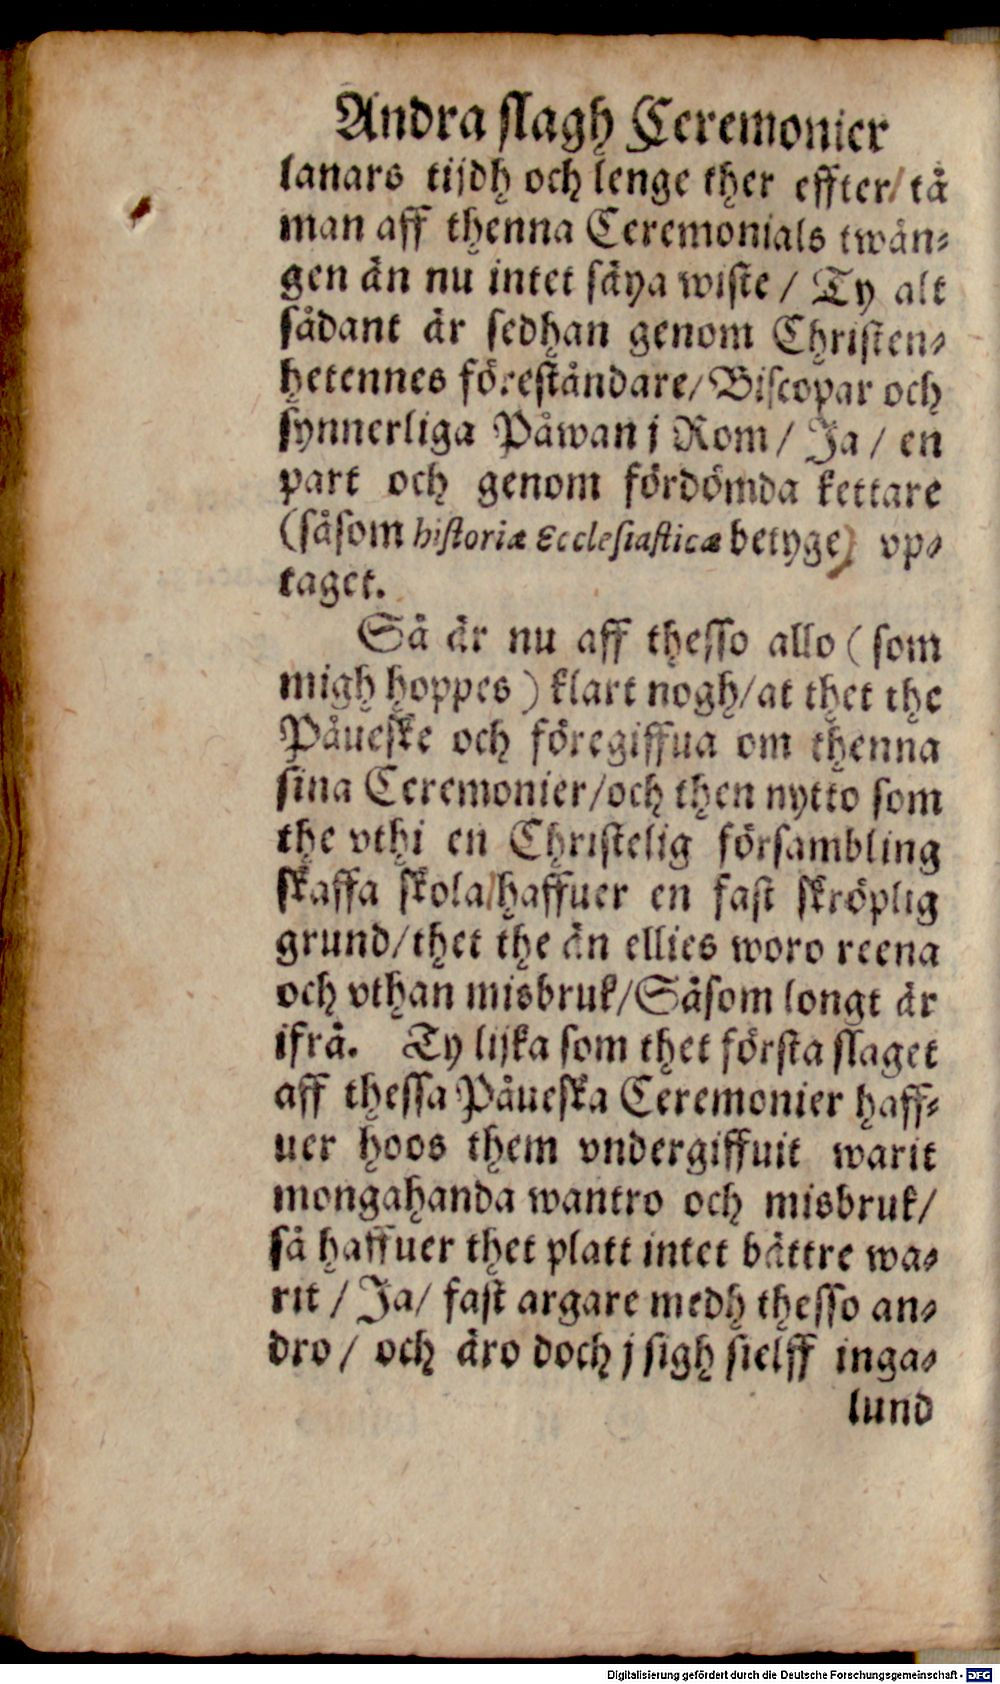 Andra slagh Ceremonier
lanars tijdh och lenge ther effter/ tå
man aff thenna Ceremonials twån-
gen än nu intet säya wiste / Ty alt
sådant är sedhan genom Christen-
hetennes föreståndare/ Biscopar och
synnerliga Påwan j Rom / Ja / en
part och genom fördömda kettare
(såsom historiæ Ecclesiasticæ betyge) vp-
taget.
Så är nu aff thesso allo ( som
migh hoppes ) klart nogh/ at thet the
Påueske och föregiffua om thenna
sina Ceremonier/ och then nytto som
the vthi en Christelig försambling
skaffa skola/ haffuer en fast skröplig
grund/ thet the än ellies woro reena
och vthan misbruk/ Såsom longt är
ifrå. Ty lijka som thet första slaget
aff thessa Påueska Ceremonier haff-
uer hoos them vndergiffuit warit
mongahanda wantro och misbruk/
så haffuer thet platt intet bättre wa-
rit / Ja/ fast argare medh thesso an-
dro / och äro doch j sigh sielff inga-
lund
Digitalisierung gefördert durch die Deutsche Forschungsgemeinschaft - DFG